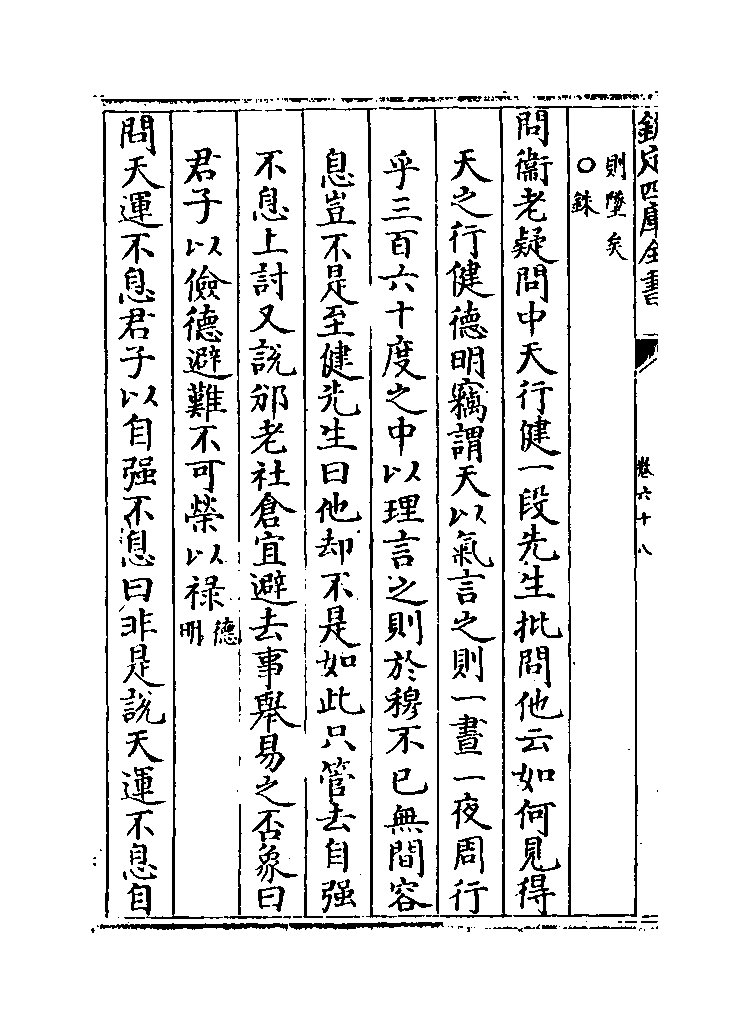 欽定四庫全書
卷六十八
則墜矣
○銖
問衞老疑問中天行健一段先生批問他云如何見得
天之行健德明竊謂天以氣言之則一晝一夜周行
乎三百六十度之中以理言之則於穆不已無間容
息豈不是至健先生曰他却不是如此只管去自强
不息上討又說邠老社倉宜避去事舉易之否象曰
君子以儉德避難不可榮以禄德
明
問天運不息君子以自强不息曰非是說天運不息自